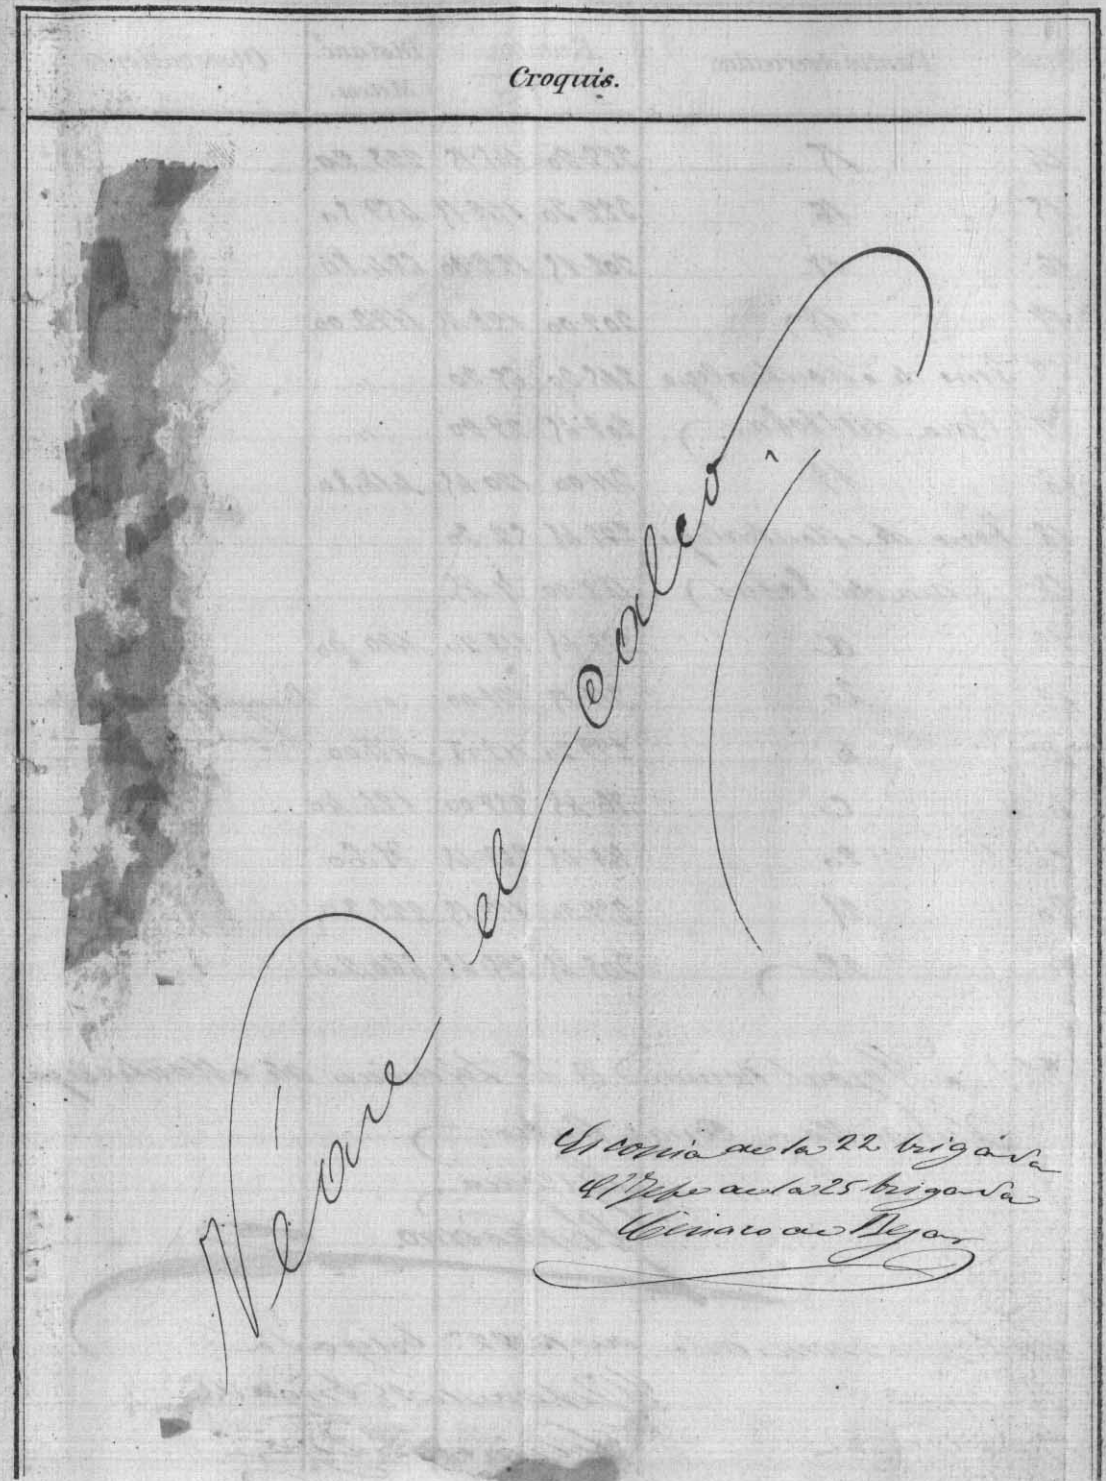 Croquis.
Véase el calco
Es copia de la 22 brigada
El Jefe de la 25 brigada
de Bejar